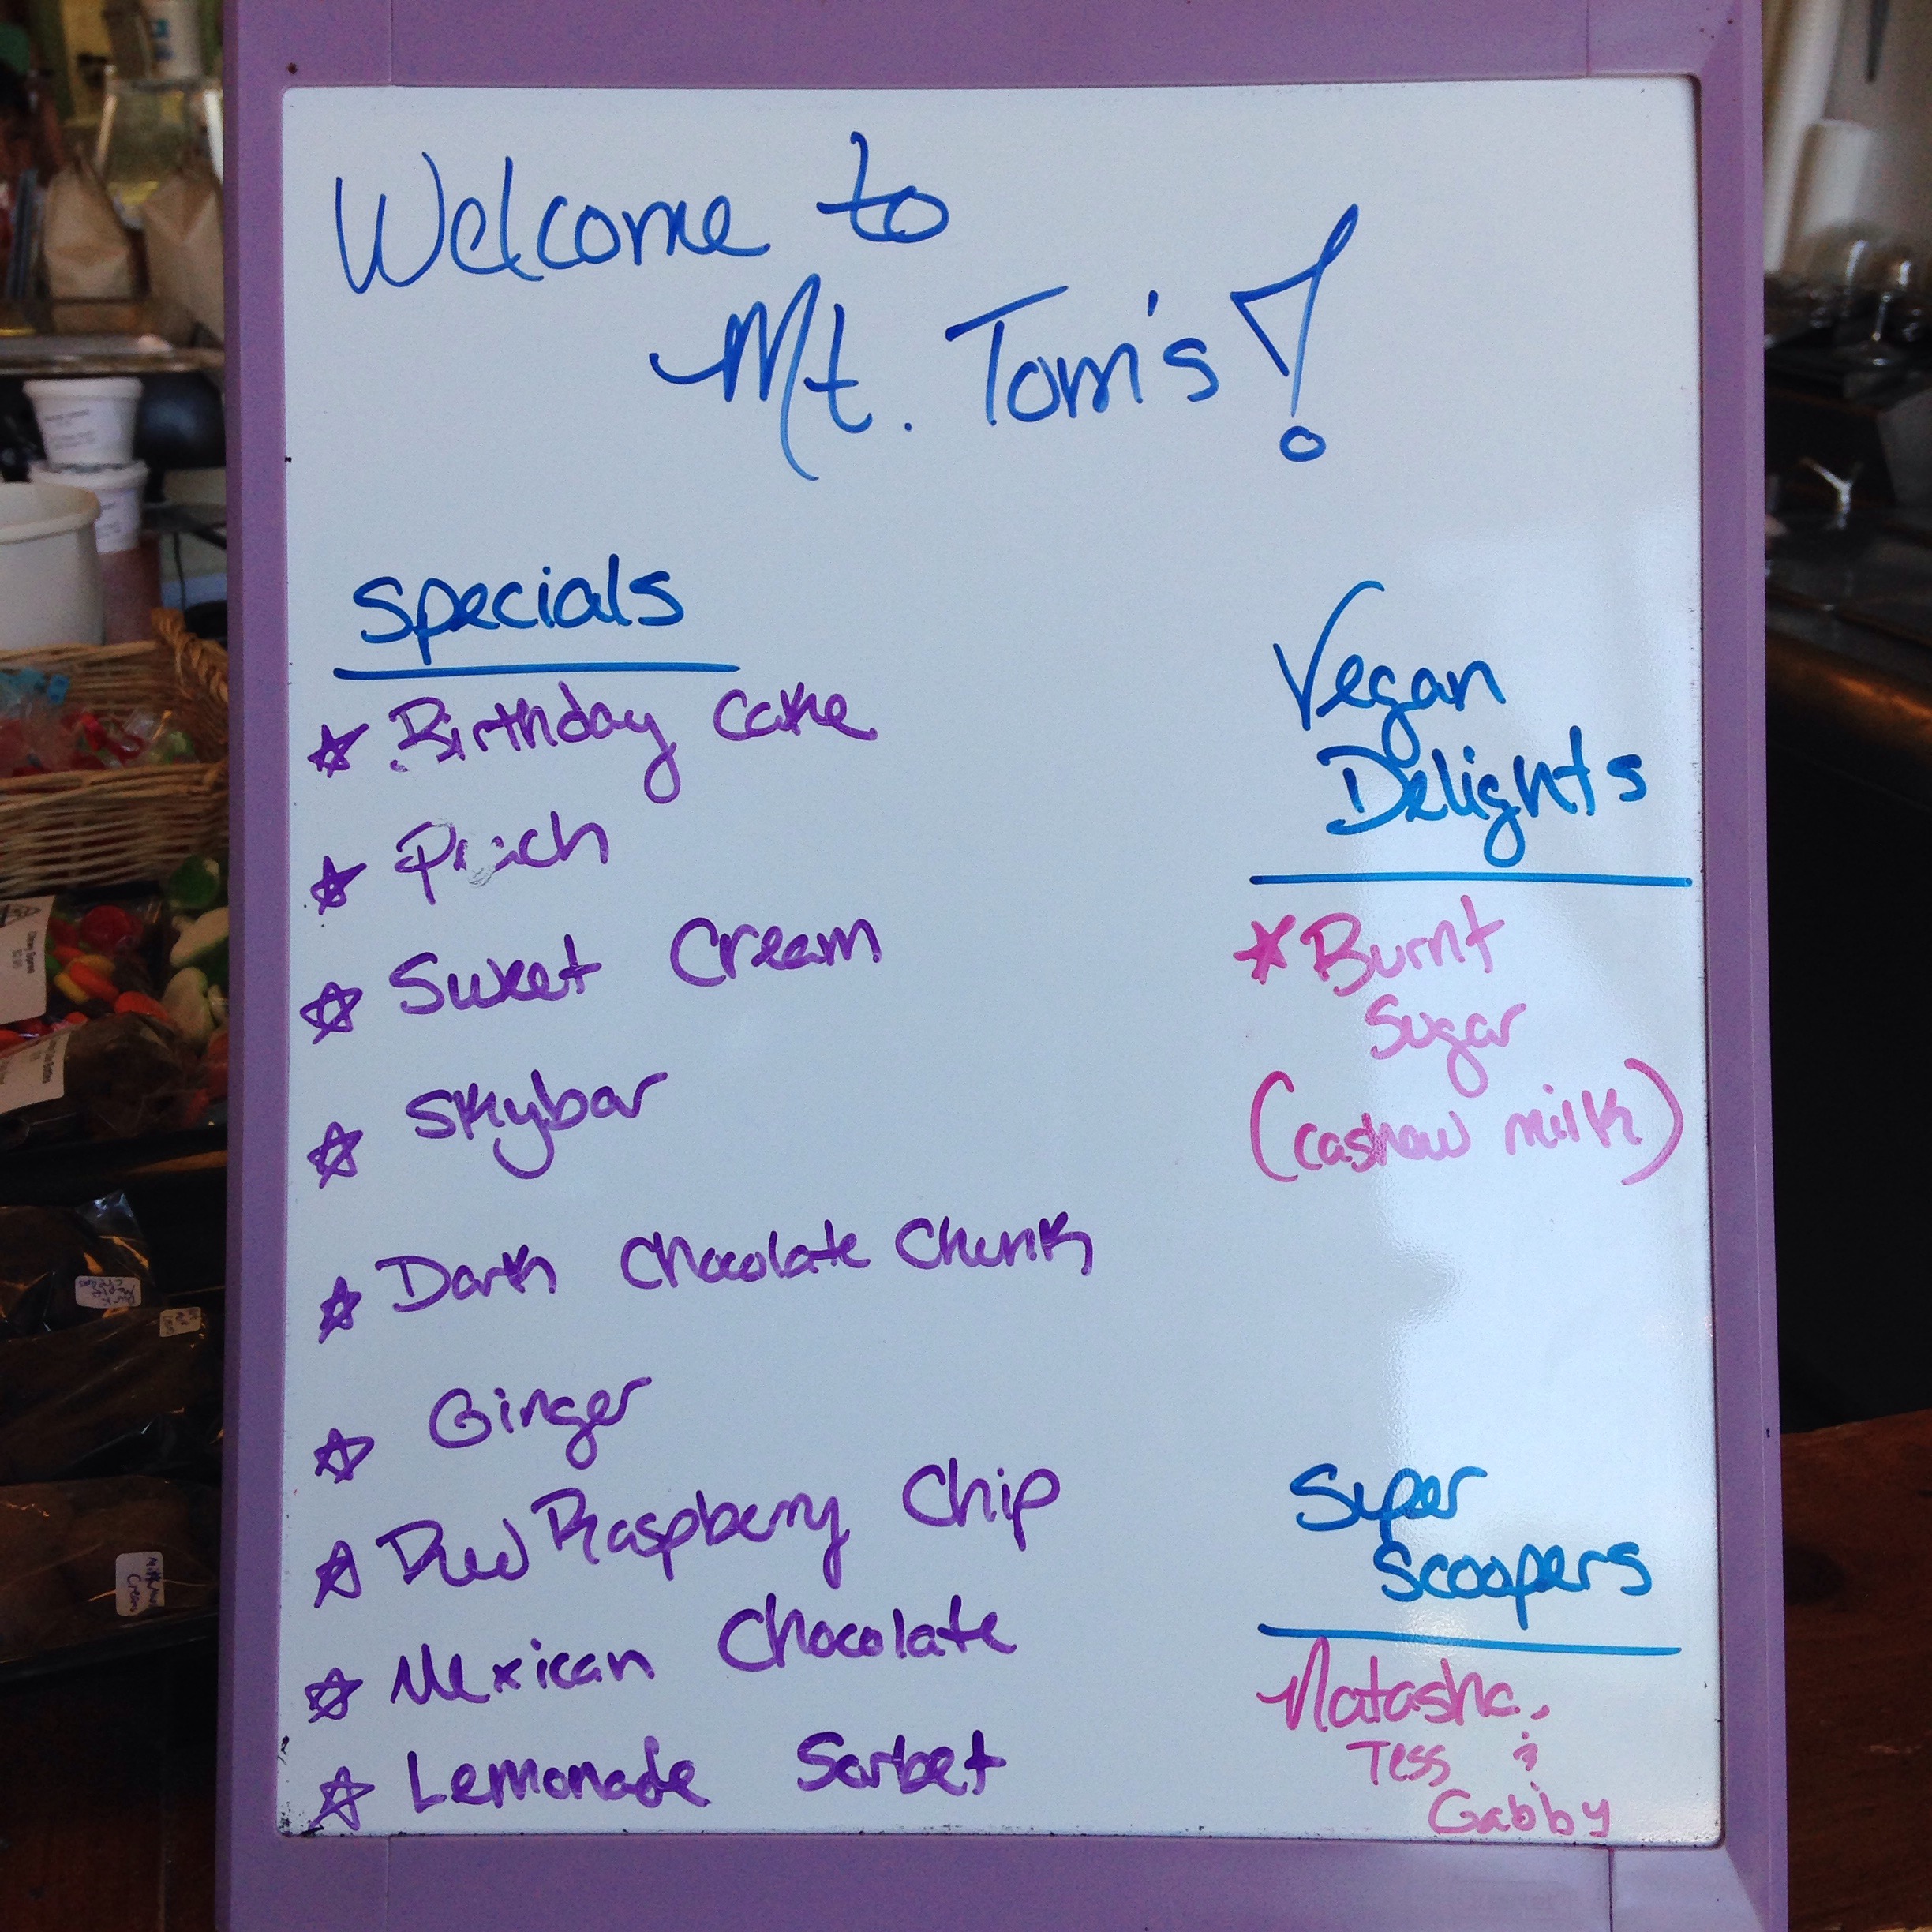 Welcome to
Mt. Tom's!
Specials
☆ Birthday Cake
☆ Peach
☆ Sweet Cream
☆ Skybar
☆ Dark Chocolate Chunk
☆ Ginger
☆ Raspberry Chip
☆ Mexican Chocolate
☆ Lemonade Sorbet
Vegan
Delights
★ Burnt
Sugar
(cashew milk)
Super
Scoopers
Natasha,
Tess &
Gabby